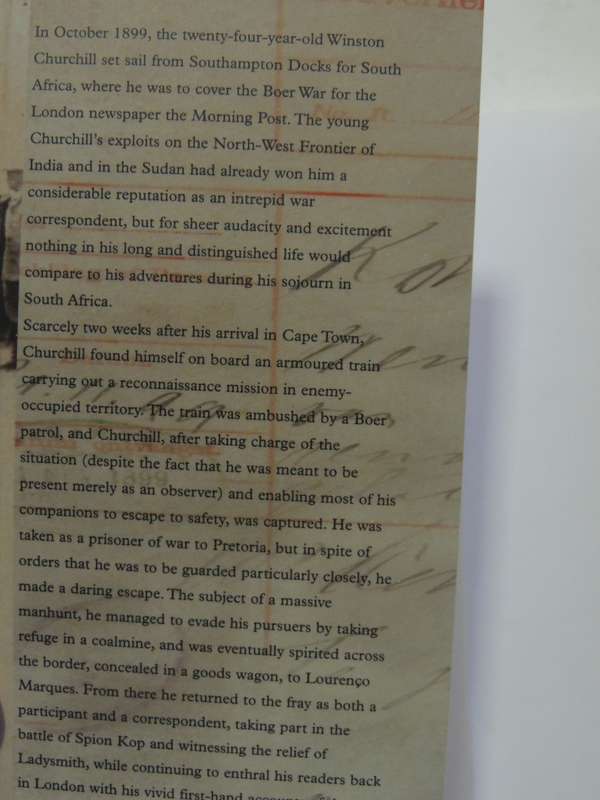 In October 1899, the twenty-four-year-old Winston
Churchill set sail from Southampton Docks for South
Africa, where he was to cover the Boer War for the
London newspaper the Morning Post. The young
Churchill's exploits on the North-West Frontier of
India and in the Sudan had already won him a
considerable reputation as an intrepid war
correspondent, but for sheer audacity and excitement
nothing in his long and distinguished life would
compare to his adventures during his sojourn in
South Africa.
Scarcely two weeks after his arrival in Cape Town,
Churchill found himself on board an armoured train
carrying out a reconnaissance mission in enemy-
occupied territory. The train was ambushed by a Boer
patrol, and Churchill, after taking charge of the
situation (despite the fact that he was meant to be
present merely as an observer) and enabling most of his
companions to escape to safety, was captured. He was
taken as a prisoner of war to Pretoria, but in spite of
orders that he was to be guarded particularly closely, he
made a daring escape. The subject of a massive
manhunt, he managed to evade his pursuers by taking
refuge in a coalmine, and was eventually spirited across
the border, concealed in a goods wagon, to Lourenço
Marques. From there he returned to the fray as both a
participant and a correspondent, taking part in the
battle of Spion Kop and witnessing the relief of
Ladysmith, while continuing to enthral his readers back
in London with his vivid first-hand